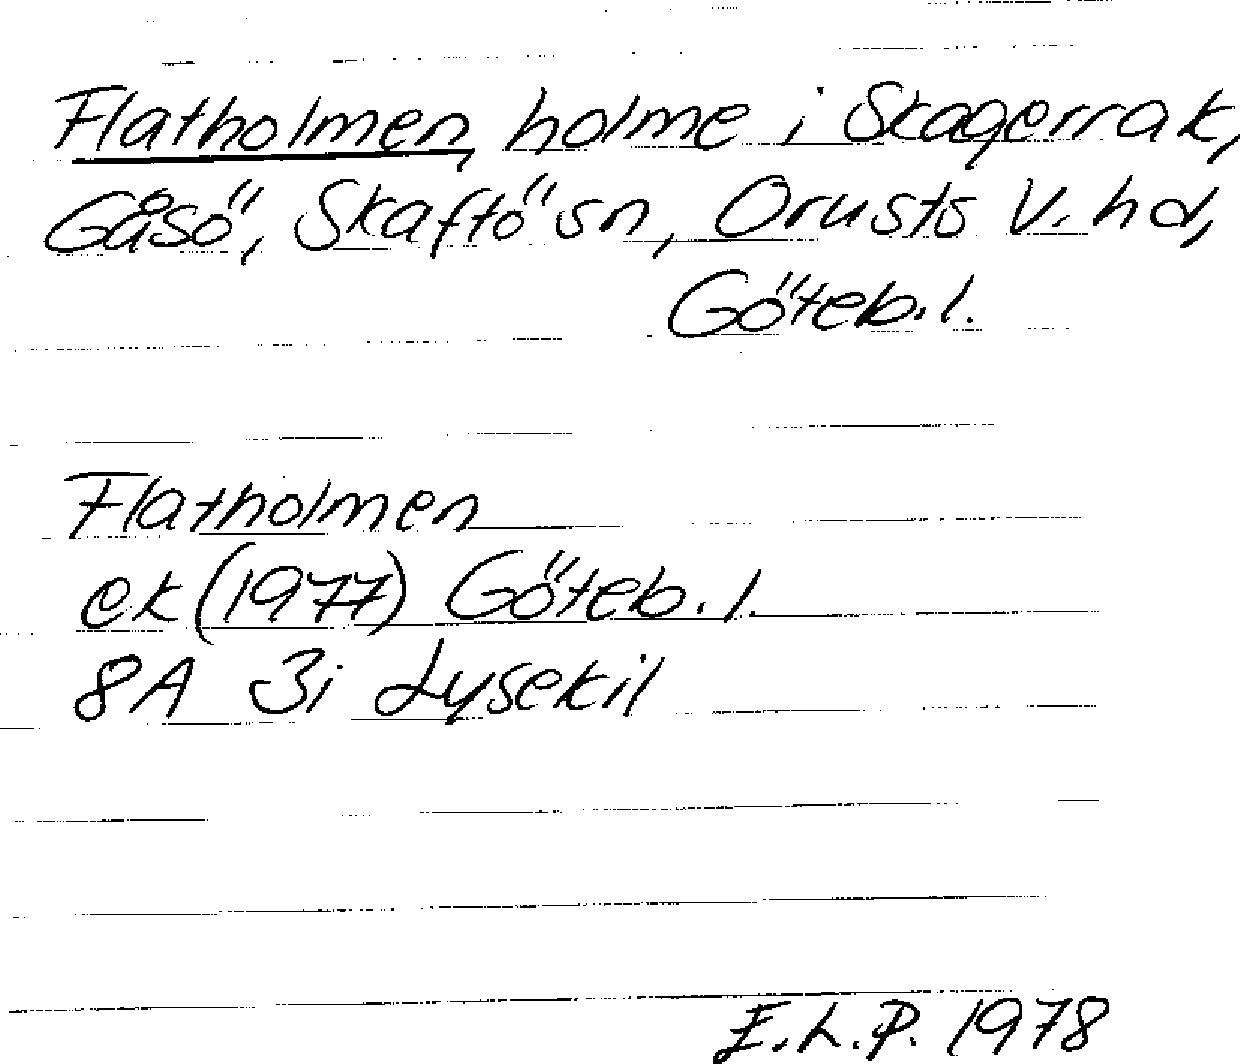 Flatholmen, holme i Skagerrak,
Gåsö, Skaftö sn, Orusts V. hd,
Göteb. l.
Flatholmen
ek (1977) Göteb. l.
8A 3i Lysekil
E.L.P. 1978